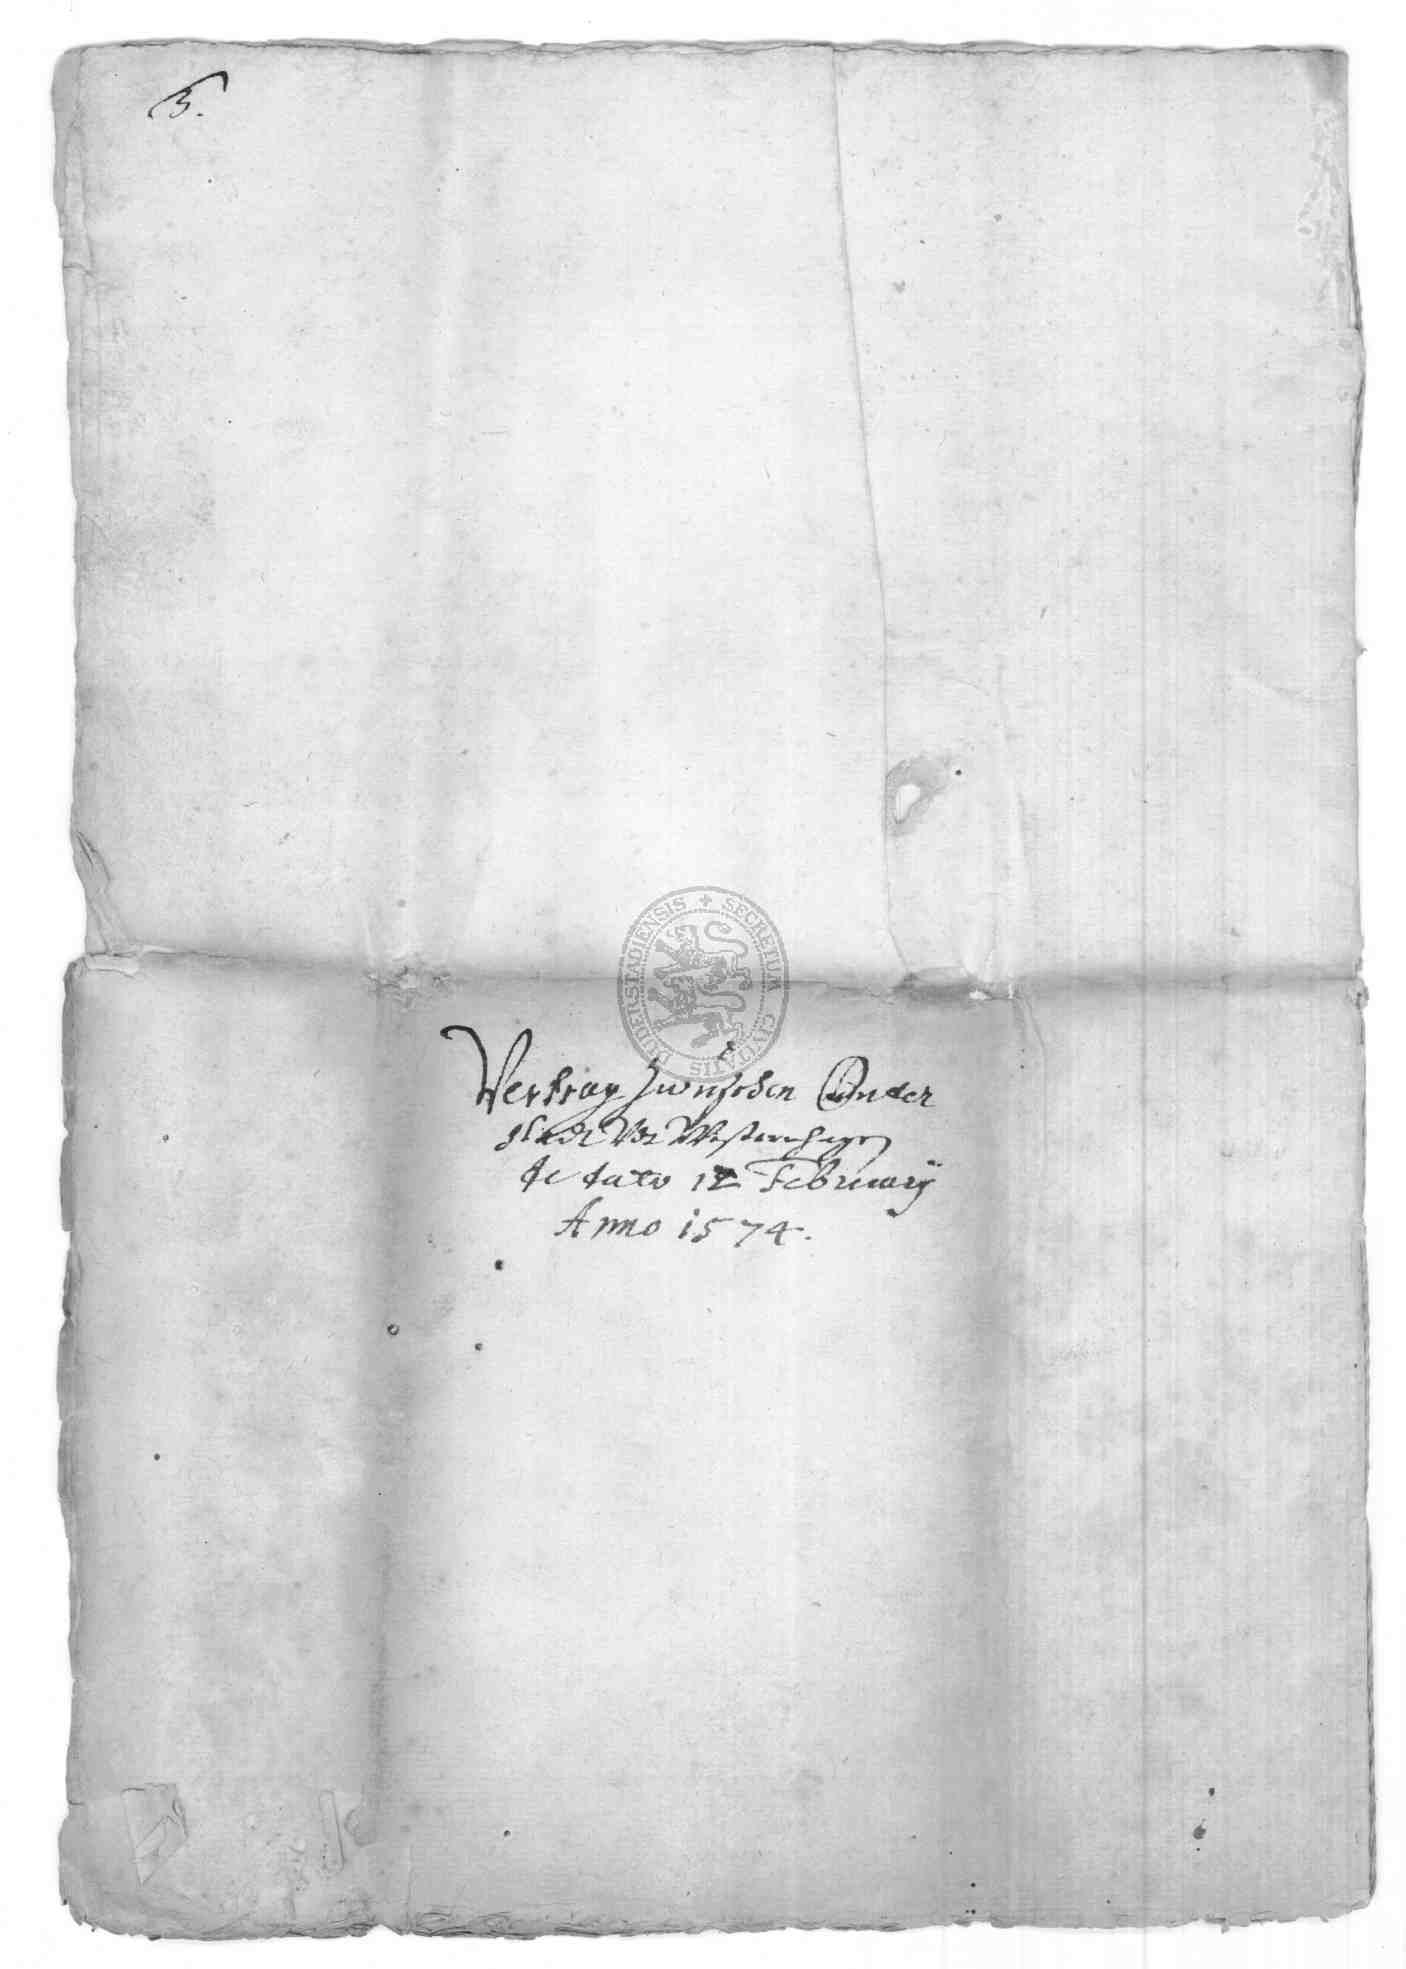 3.
SECRETUM CIVITATIS DUDERSTADIENSIS
Vertrag zwischen Duder
stadt Vdt Westernhagen
de dato 12 February
Anno 1574.